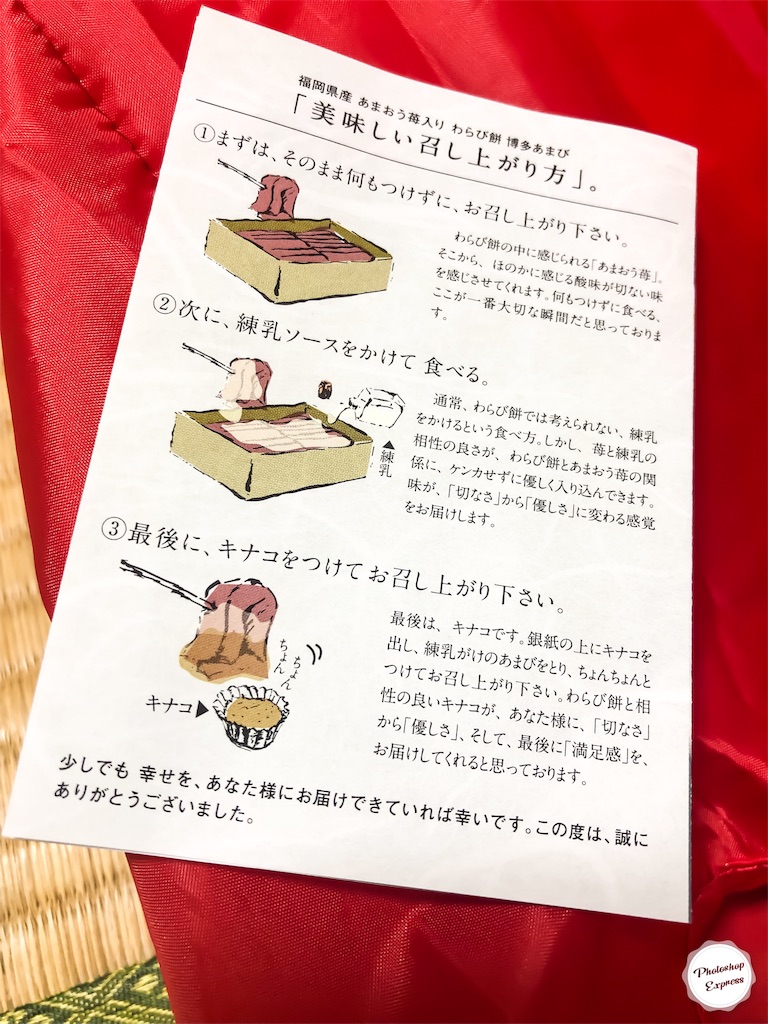 福岡県産 あまおう苺入り わらび餅 博多あまび
「美味しい召し上がり方」。
①まずは、そのまま何もつけずに、お召し上がり下さい。
わらび餅の中に感じられる「あまおう苺」。
そこから、ほのかに感じる酸味が切ない味
を感じさせてくれます。何もつけずに食べる、
ここが一番大切な瞬間だと思っておりま
す。
②次に、練乳ソースをかけて 食べる。
▲練乳
通常、わらび餅では考えられない、練乳
をかけるという食べ方。しかし、苺と練乳の
相性の良さが、わらび餅とあまおう苺の関
係に、ケンカせずに優しく入り込んできます。
味が、「切なさ」から「優しさ」に変わる感覚
をお届けします。
③最後に、キナコをつけて お召し上がり下さい。
ちょん
ちょん
キナコ▶
最後は、キナコです。銀紙の上にキナコを
出し、練乳がけのあまびをとり、ちょんちょんと
つけてお召し上がり下さい。わらび餅と相
性の良いキナコが、あなた様に、「切なさ」
から「優しさ」、そして、最後に「満足感」を、
お届けしてくれると思っております。
少しでも 幸せを、あなた様にお届けできていれば幸いです。この度は、誠に
ありがとうございました。
Photoshop
Express